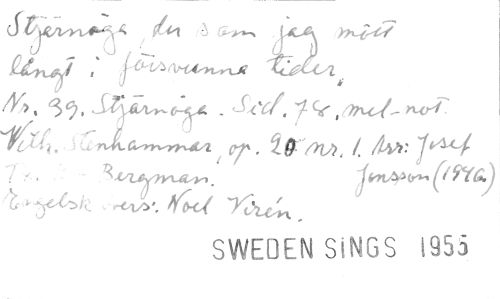 Stjärnöga, du som jag mött
långt i försvunna tider,
Nr. 39. Stjärnöga. Sid. 78. mel-not.
Wilh. Stenhammar, op. 20 nr. 1. Arr: Josef
Bergman. Jonsson (1946)
Engelsk övers: Noel Virén.
SWEDEN SiNGS 1955